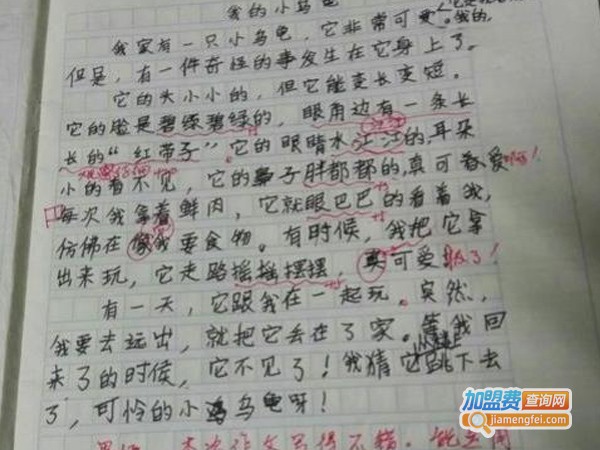 我的小乌龟
我家有一只小乌龟，它非常可爱。我的，
但是，有一件奇怪的事发生在它身上了。
它的头小小的，但它能变长变短。
它的脸是碧绿碧绿的，眼角边有一条长
长的“红带子”。它的眼睛水汪汪的，耳朵
小的看不见，它的鼻子胖都都的，真可爱啊！
每次我拿着鲜肉，它就眼巴巴的看着我，
仿佛在像我要食物。有时候，我把它拿
出来玩，它走路摇摇摆摆，真可爱极了！
有一天，它跟我在一起玩。突然，
我要去远出，就把它丢在了家。等我回
来了的时候，它不见了！我猜它从楼上跳下去
了，可怜的小乌龟呀！
本次作文写得不错，能运用
加盟费查询网
jiamengfei.com